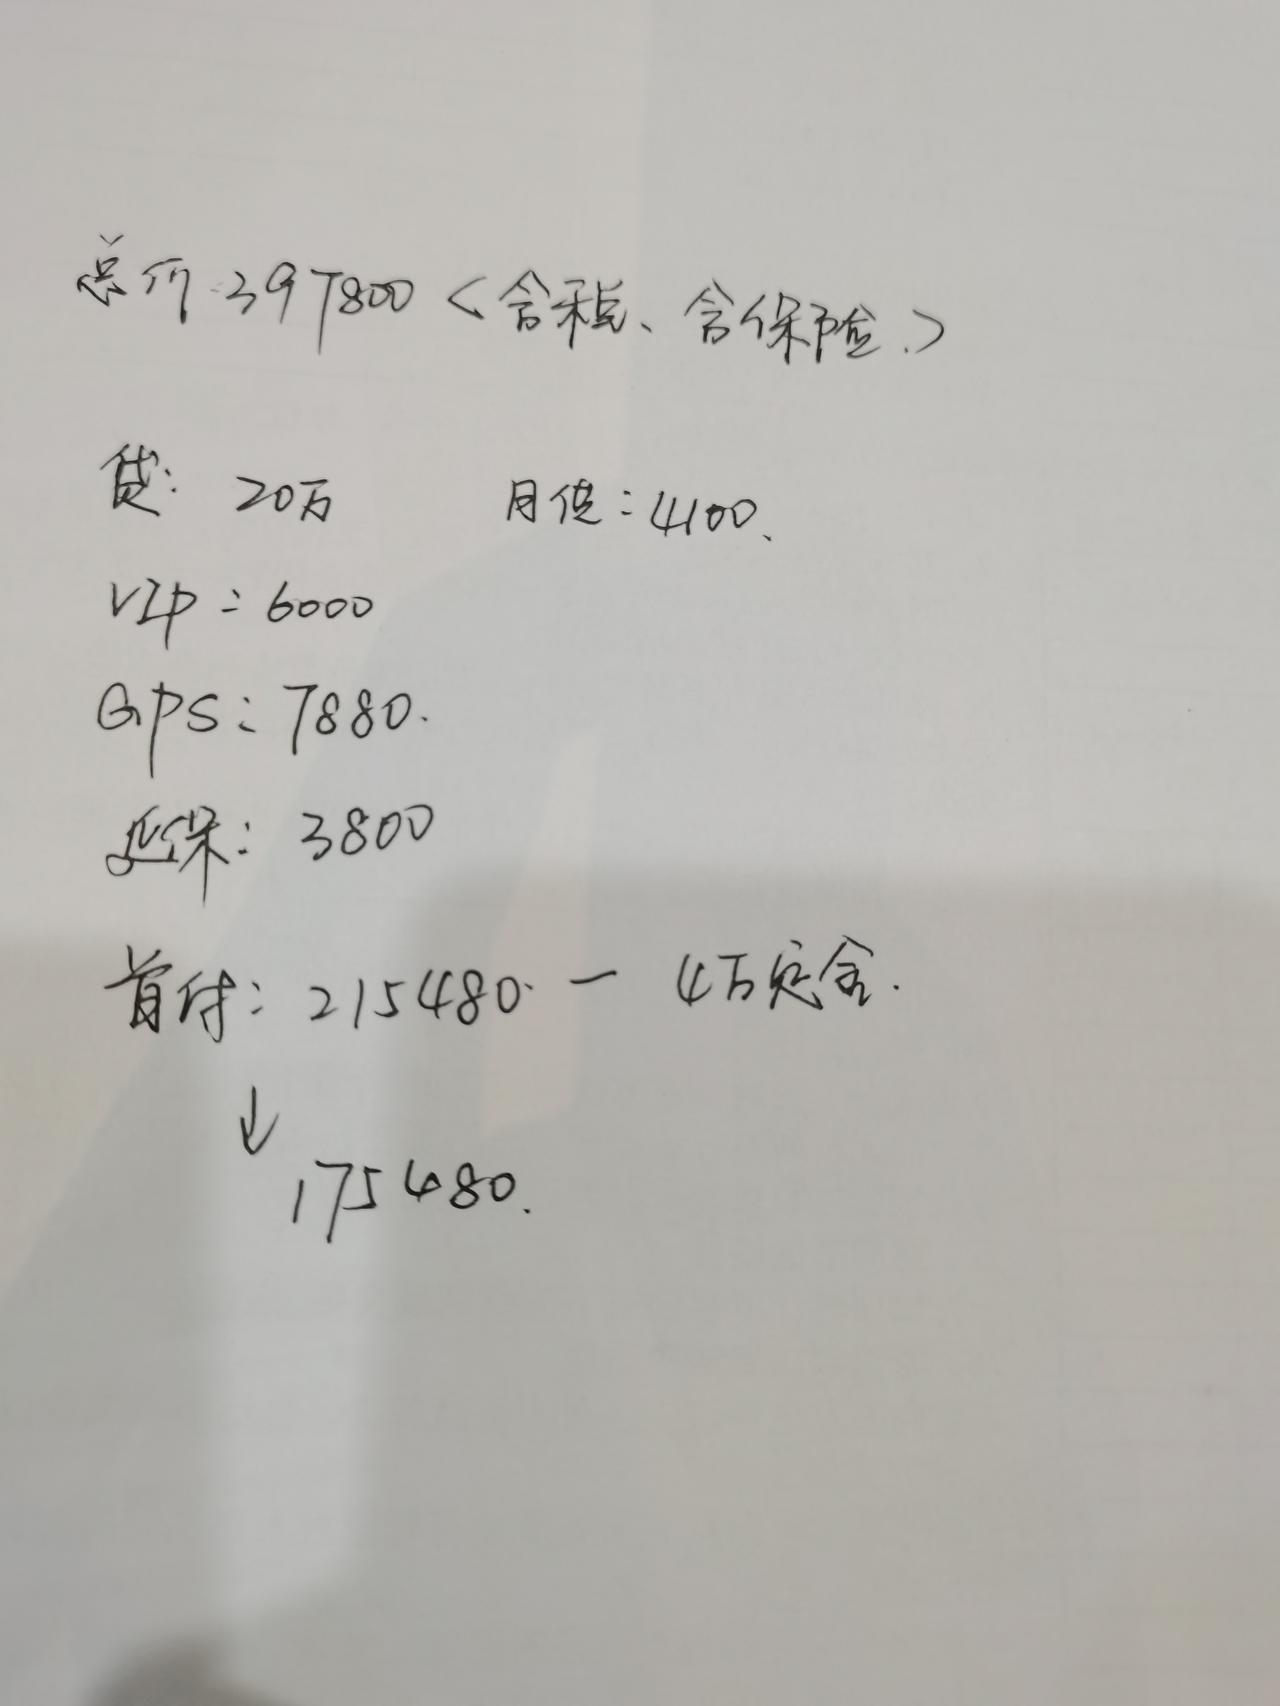 总价:397800(含税、含保险.)
贷: 20万 月供:4100、
VIP:6000
GPS:7880.
延保:3800
首付:215480. — 4万定金.
↓
175480.